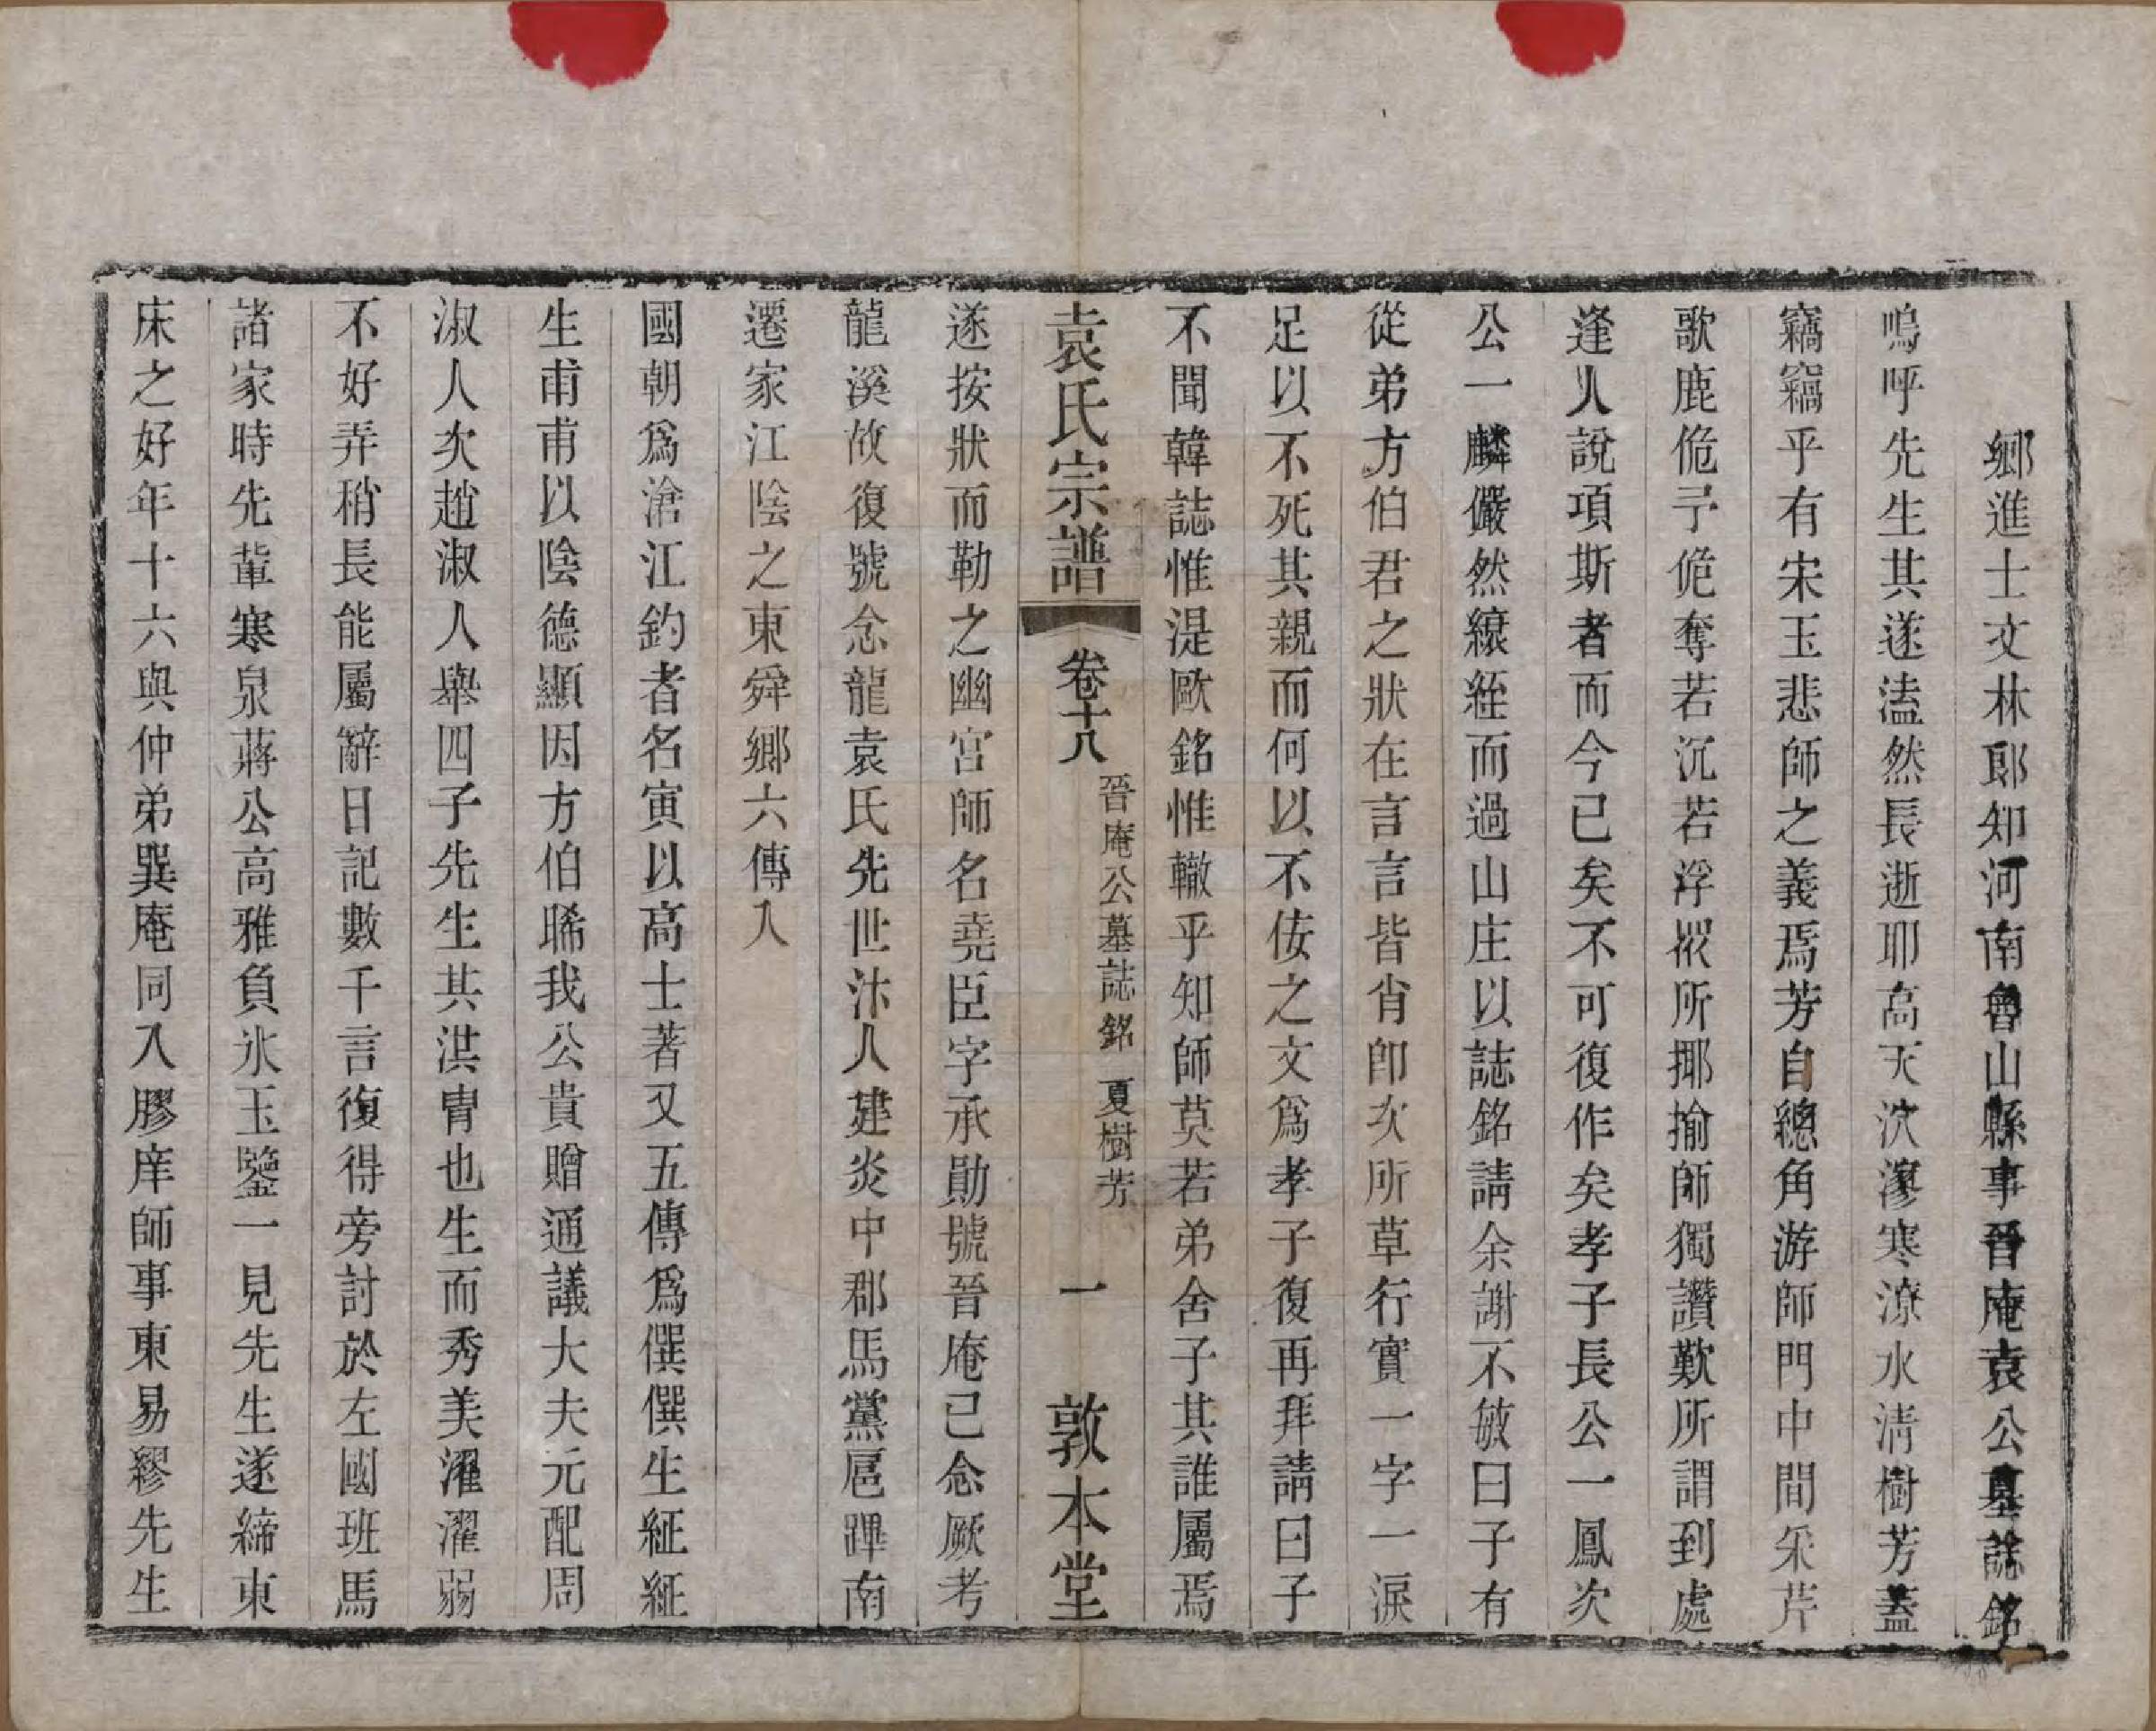 鄉進士文林郎知河南魯山縣事晉庵袁公墓誌銘
嗚呼先生其遂溘然長逝耶高天泬漻寒潦水淸樹芳蓋
竊竊乎有宋玉悲師之義焉芳自總角游師門中間采芹
歌鹿佹予佹奪若沉若浮㧞所揶揄師獨讚歎所謂到處
逢人說項斯者而今已矣不可復作矣孝子長公一鳳次
公一麟儼然縗絰而過山庄以誌銘請余謝不敏曰子有
從弟方伯君之狀在言言皆肖卽次所草行實一字一淚
足以不死其親而何以不佞之文爲孝子復再拜請曰子
不聞韓誌惟湜歐銘惟轍乎知師莫若弟舍子其誰屬焉
袁氏宗譜 卷十八 晉庵公墓誌銘 夏樹芳 一 敦本堂
遂按狀而勒之幽宮師名堯臣字承勛號晉庵已念厥考
龍溪故復號念龍袁氏先世汴人建炎中郡馬黨扈蹕南
遷家江陰之東舜鄉六傳入
國朝爲滄江釣者名寅以高士著又五傳爲僎僎生絍絍
生甫甫以陰德顯因方伯睎我公貴贈通議大夫元配周
淑人次趙淑人舉四子先生其洪胄也生而秀美濯濯弱
不好弄稍長能屬辭日記數千言復得旁討於左國班馬
諸家時先輩寒泉蔣公高雅負氷玉鑒一見先生遂締東
床之好年十六與仲弟巽庵同入膠庠師事東易繆先生